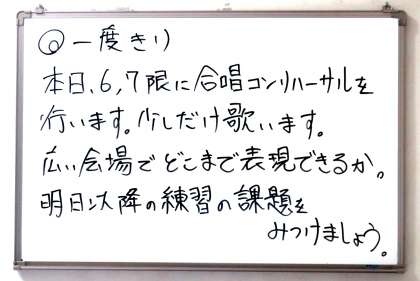 ◎一度きり
本日、6,7限に合唱コンリハーサルを
行います。少しだけ歌います。
広い会場でどこまで表現できるか。
明日以降の練習の課題を
みつけましょう。